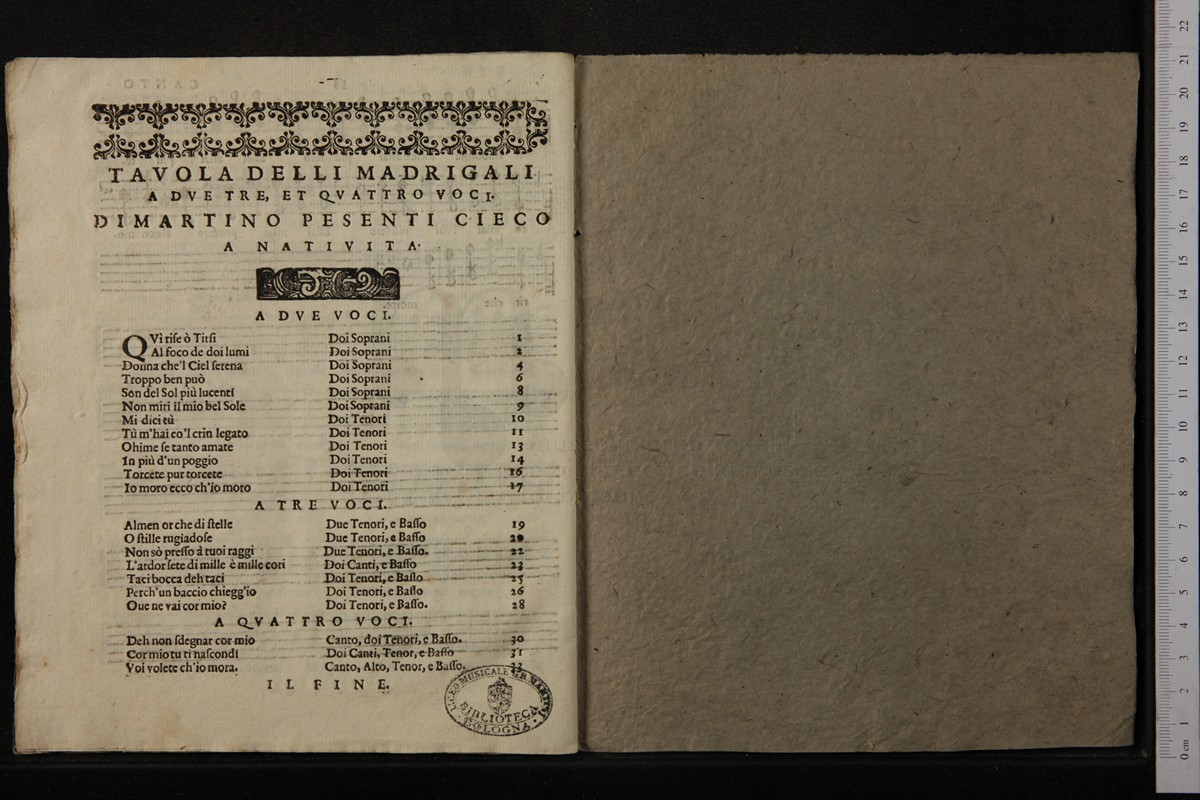 TAVOLA DELLI MADRIGALI
A DVE TRE, ET QVATTRO VOCI.
DI MARTINO PESENTI CIECO
A NATIVITA.
A DVE VOCI.
QVì riſe ò Tirſi Doi Soprani 1
Al foco de doi lumi Doi Soprani 2
Donna che'l Ciel ſerena Doi Soprani 4
Troppo ben può Doi Soprani 6
Son del Sol più lucenti Doi Soprani 8
Non miri il mio bel Sole Doi Soprani 9
Mi dici tù Doi Tenori 10
Tù m'hai co'l crin legato Doi Tenori 11
Ohime ſe tanto amate Doi Tenori 13
In più d'un poggio Doi Tenori 14
Torcete pur torcete Doi Tenori 16
Io moro ecco ch'io moro Doi Tenori 17
A TRE VOCI.
Almen or che di ſtelle Due Tenori, e Baſſo 19
O ſtille rugiadoſe Due Tenori, e Baſſo 20
Non sò preſſo à tuoi raggi Due Tenori, e Baſſo. 22
L'ardor ſete di mille è mille cori Doi Canti, e Baſſo 23
Taci bocca deh taci Doi Tenori, e Baſſo 25
Perch'un baccio chiegg'io Doi Tenori, e Baſſo 26
Oue ne vai cor mio? Doi Tenori, e Baſſo. 28
A QVATTRO VOCI.
Deh non ſdegnar cor mio Canto, doi Tenori, e Baſſo. 30
Cor mio tu ti naſcondi Doi Canti, Tenor, e Baſſo 31
Voi volete ch'io mora. Canto, Alto, Tenor, e Baſſo. 33
IL FINE.
LICEO MUSICALE G.B. MARTINI
BIBLIOTECA
BOLOGNA
0 cm 1 2 3 4 5 6 7 8 9 10 11 12 13 14 15 16 17 18 19 20 21 22